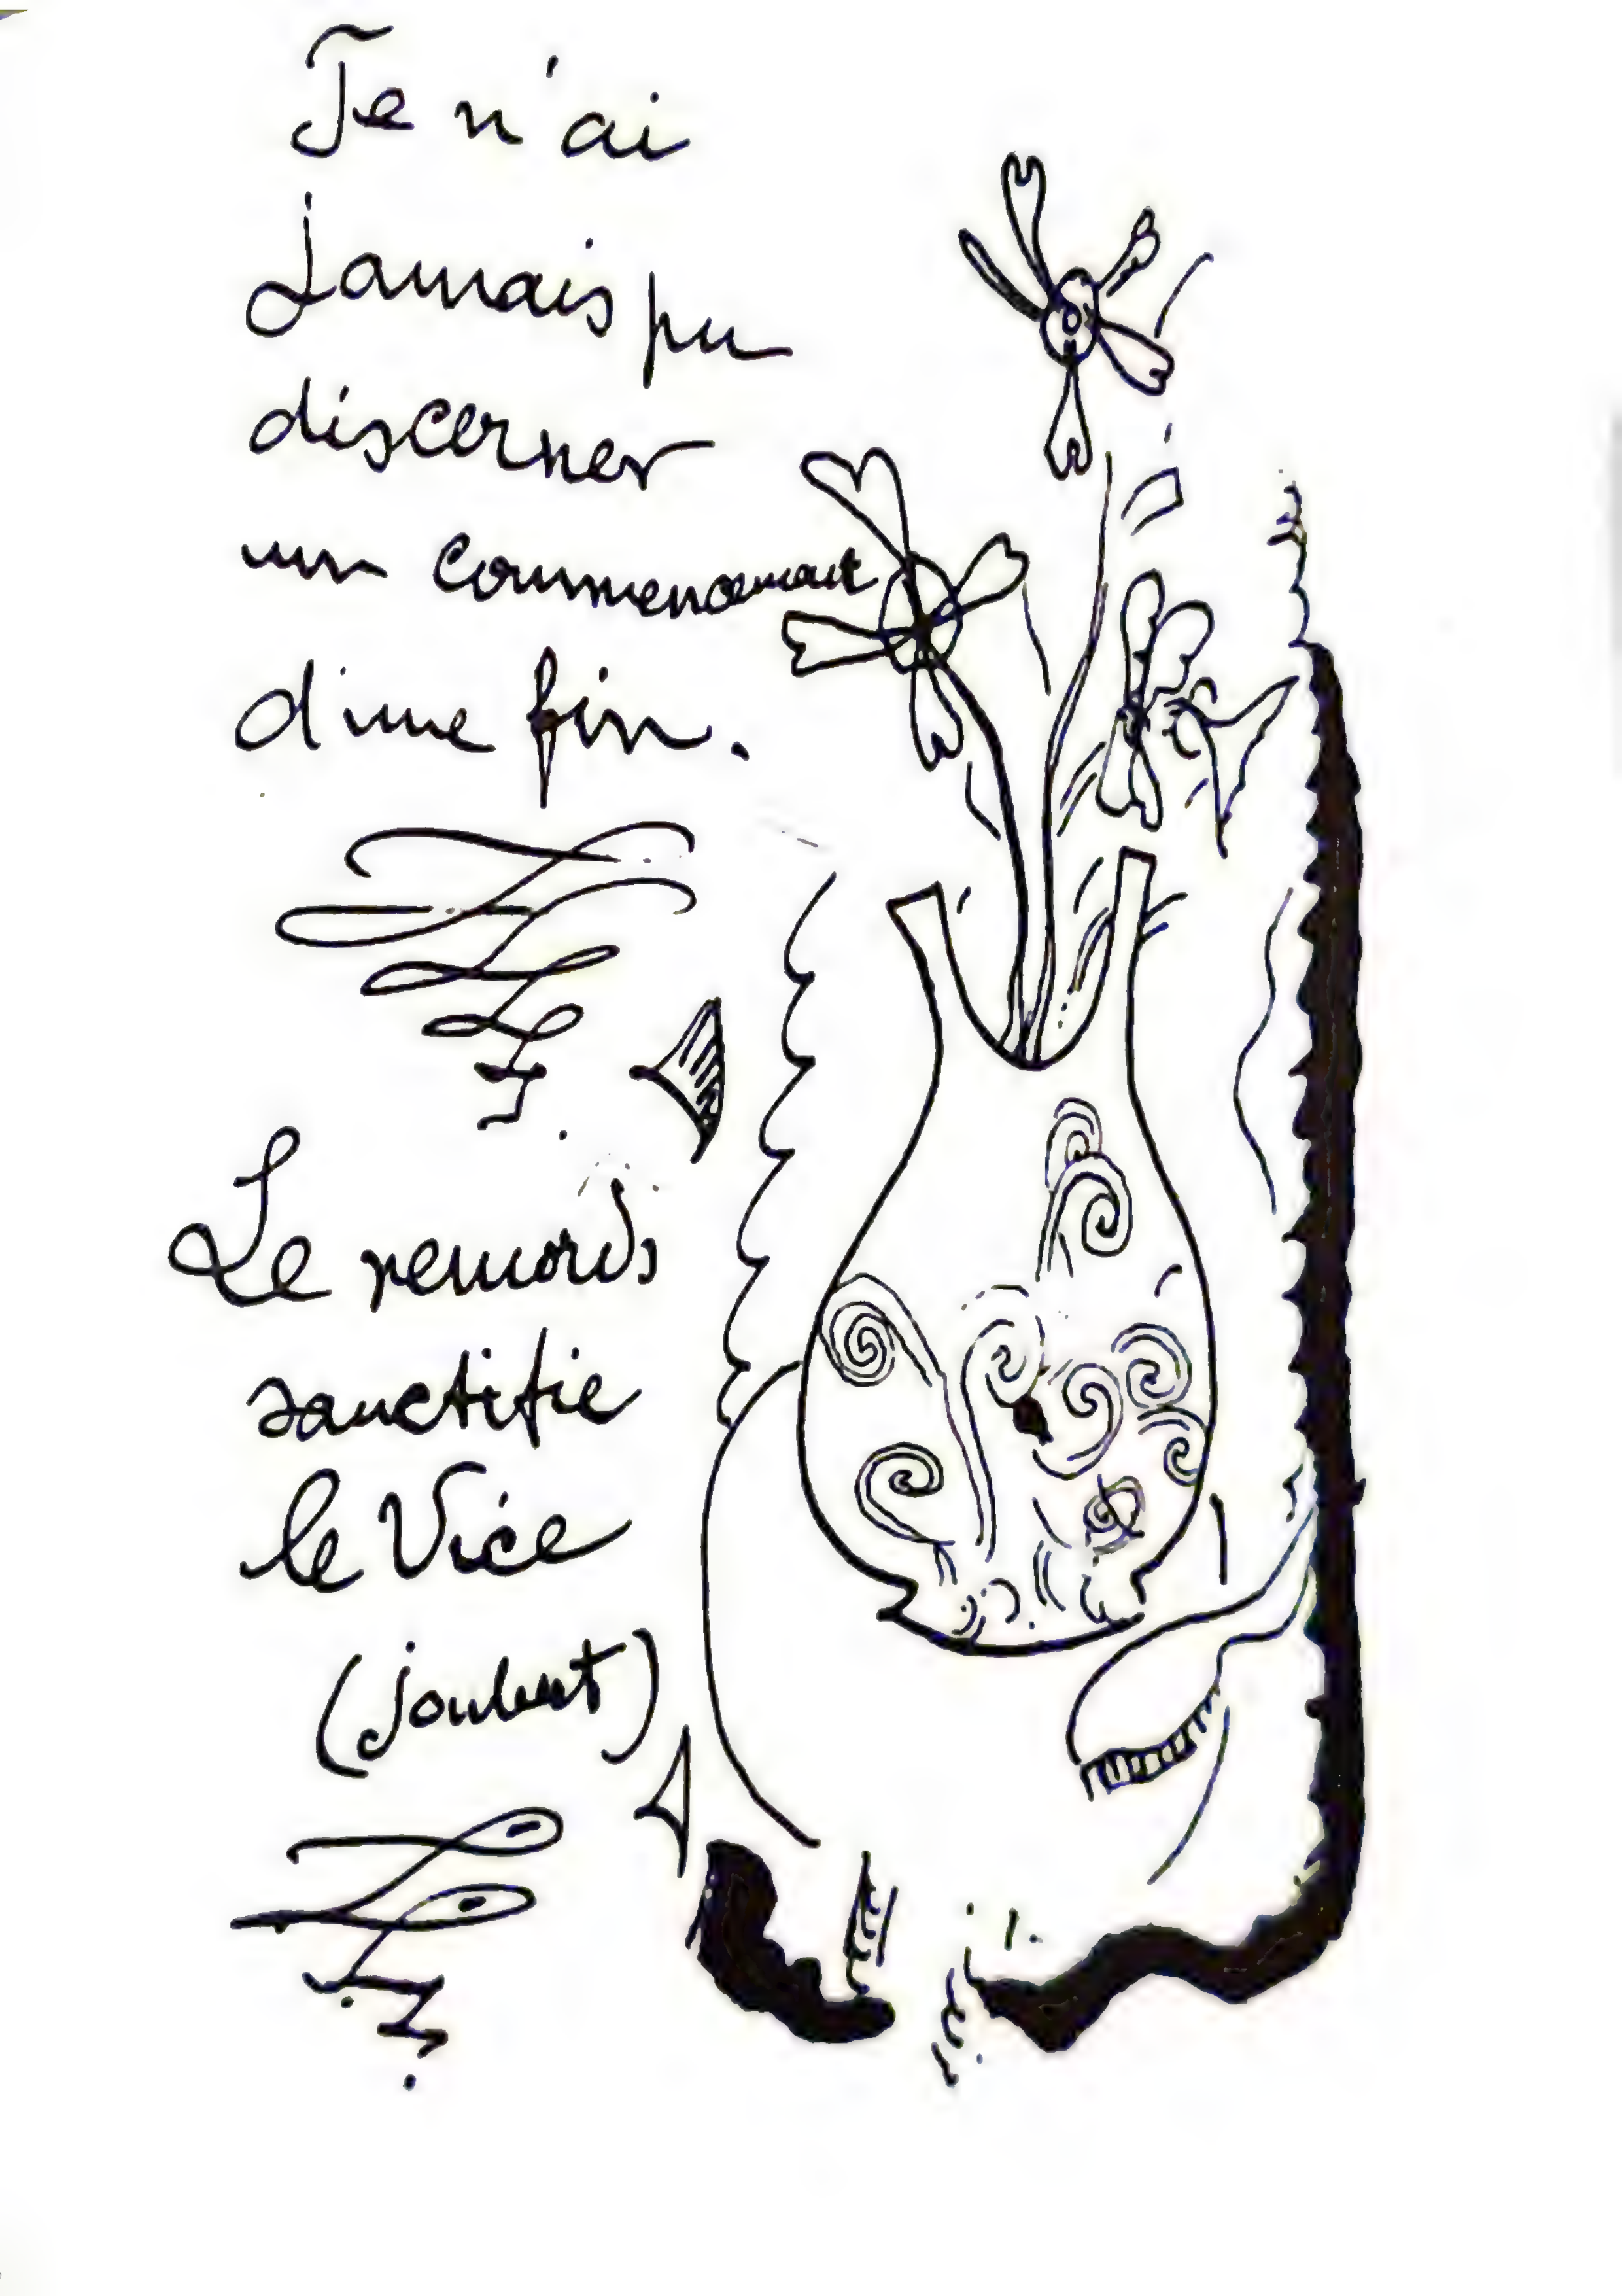 Je n'ai
jamais pu
discerner
un commencement
d'une fin.
Le remords
sanctifie
le Vice
(joubert)